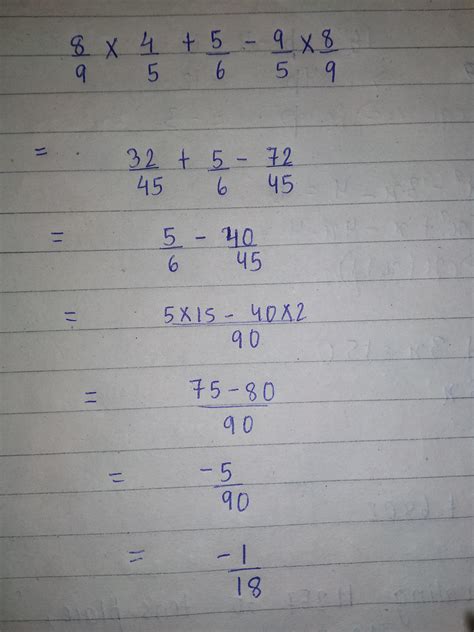 8/9 × 4/5 + 5/6 - 9/5 × 8/9
= 32/45 + 5/6 - 72/45
= 5/6 - 40/45
= 5×15 - 40×2/90
= 75-80/90
= -5/90
= -1/18